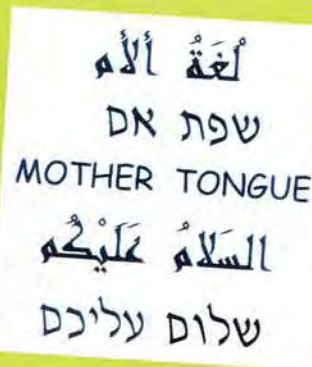 لُغَةُ ألأم
שפת אם
MOTHER TONGUE
السَلامُ عَلَيْكُم
שלום עליכם